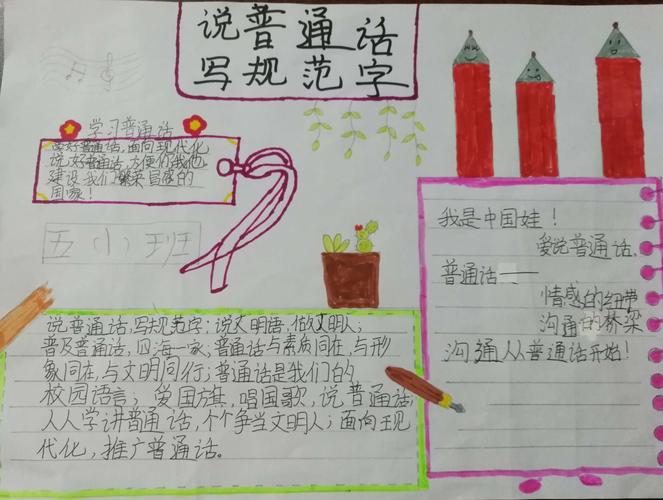 说普通话
写规范字
学习普通话
学好普通话,面向现代化
说好普通话,方便你我他
建设我们繁荣昌盛的
国家!
五(小)班
我是中国娃!
爱说普通话,
普通话——
情感的纽带
沟通的桥梁
沟通从普通话开始!
说普通话,写规范字;说文明语,做文明人;
普及普通话,四海一家;普通话与素质同在,与形
象同在,与文明同行;普通话是我们的
校园语言;爱国旗,唱国歌,说普通话;
人人学讲普通话,个个争当文明人;面向现
代化,推广普通话。